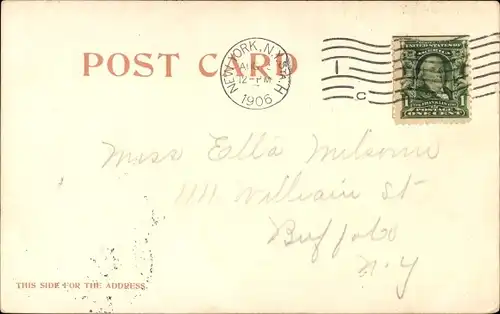 POST CARD
NEW YORK, N.Y.
12-PM
1906
UNITED STATES OF AMERICA
1 1
POSTAGE
ONE CENT
C
Miss Ella
1111 William St
Buffalo
N. Y
THIS SIDE FOR THE ADDRESS.